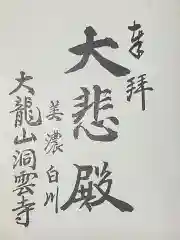 奉拝
大悲殿
美濃白川
大龍山洞雲寺